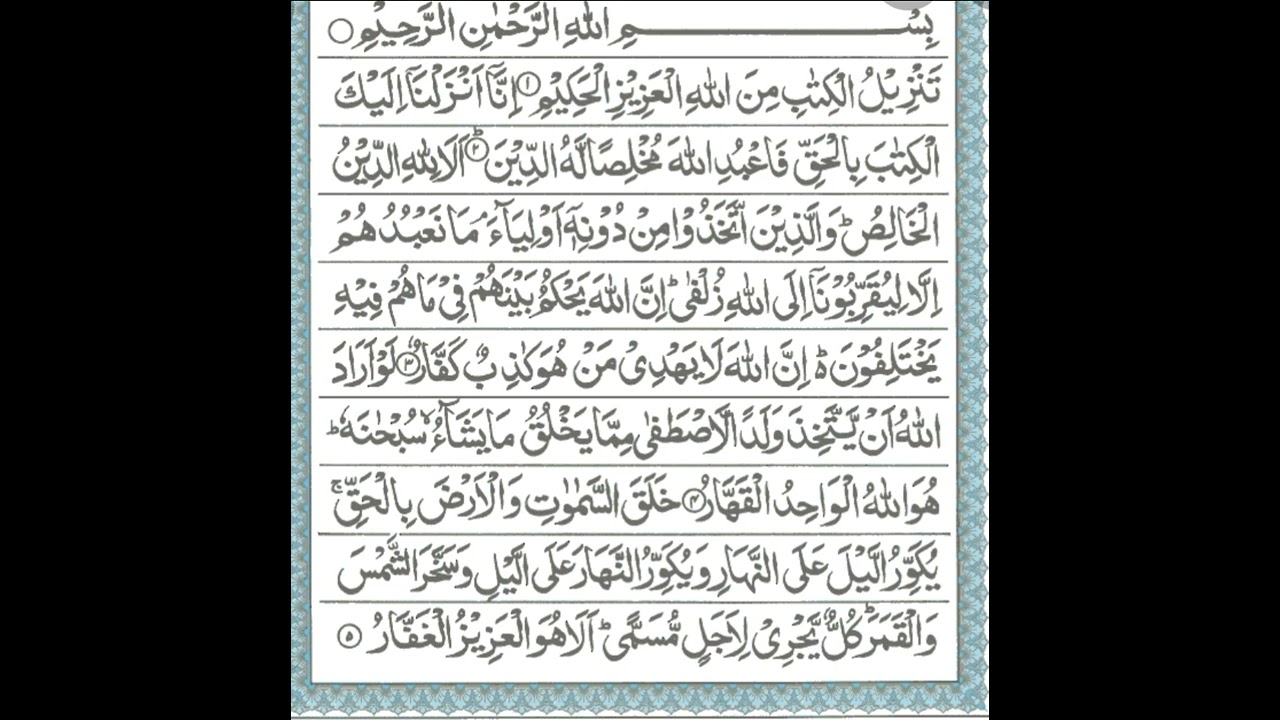 بِسْــــــــــمِ اللهِ الرَّحْمٰنِ الرَّحِيْمِ ○
تَنْزِيْلُ الْكِتٰبِ مِنَ اللهِ الْعَزِيْزِ الْحَكِيْمِ ① اِنَّاۤ اَنْزَلْنَاۤ اِلَيْكَ
الْكِتٰبَ بِالْحَقِّ فَاعْبُدِ اللهَ مُخْلِصًا لَّهُ الدِّيْنَ ②ؕ اَلَا لِلهِ الدِّيْنُ
الْخَالِصُ ؕ وَالَّذِيْنَ اتَّخَذُوْا مِنْ دُوْنِهٖۤ اَوْلِيَآءَ ۘ مَا نَعْبُدُهُمْ
اِلَّا لِيُقَرِّبُوْنَاۤ اِلَى اللهِ زُلْفٰى ؕ اِنَّ اللهَ يَحْكُمُ بَيْنَهُمْ فِيْ مَا هُمْ فِيْهِ
يَخْتَلِفُوْنَ ؕ۬ اِنَّ اللهَ لَا يَهْدِىْ مَنْ هُوَ كٰذِبٌ كَفَّارٌ ③ لَوْ اَرَادَ
اللهُ اَنْ يَّتَّخِذَ وَلَدًا لَّاصْطَفٰى مِمَّا يَخْلُقُ مَا يَشَآءُ ۙ سُبْحٰنَهٗ ؕ
هُوَ اللهُ الْوَاحِدُ الْقَهَّارُ ④ خَلَقَ السَّمٰوٰتِ وَالْاَرْضَ بِالْحَقِّ ۚ
يُكَوِّرُ الَّيْلَ عَلَى النَّهَارِ وَيُكَوِّرُ النَّهَارَ عَلَى الَّيْلِ وَسَخَّرَ الشَّمْسَ
وَالْقَمَرَ ؕ كُلٌّ يَّجْرِىْ لِاَجَلٍ مُّسَمًّى ؕ اَلَا هُوَ الْعَزِيْزُ الْغَفَّارُ ⑤